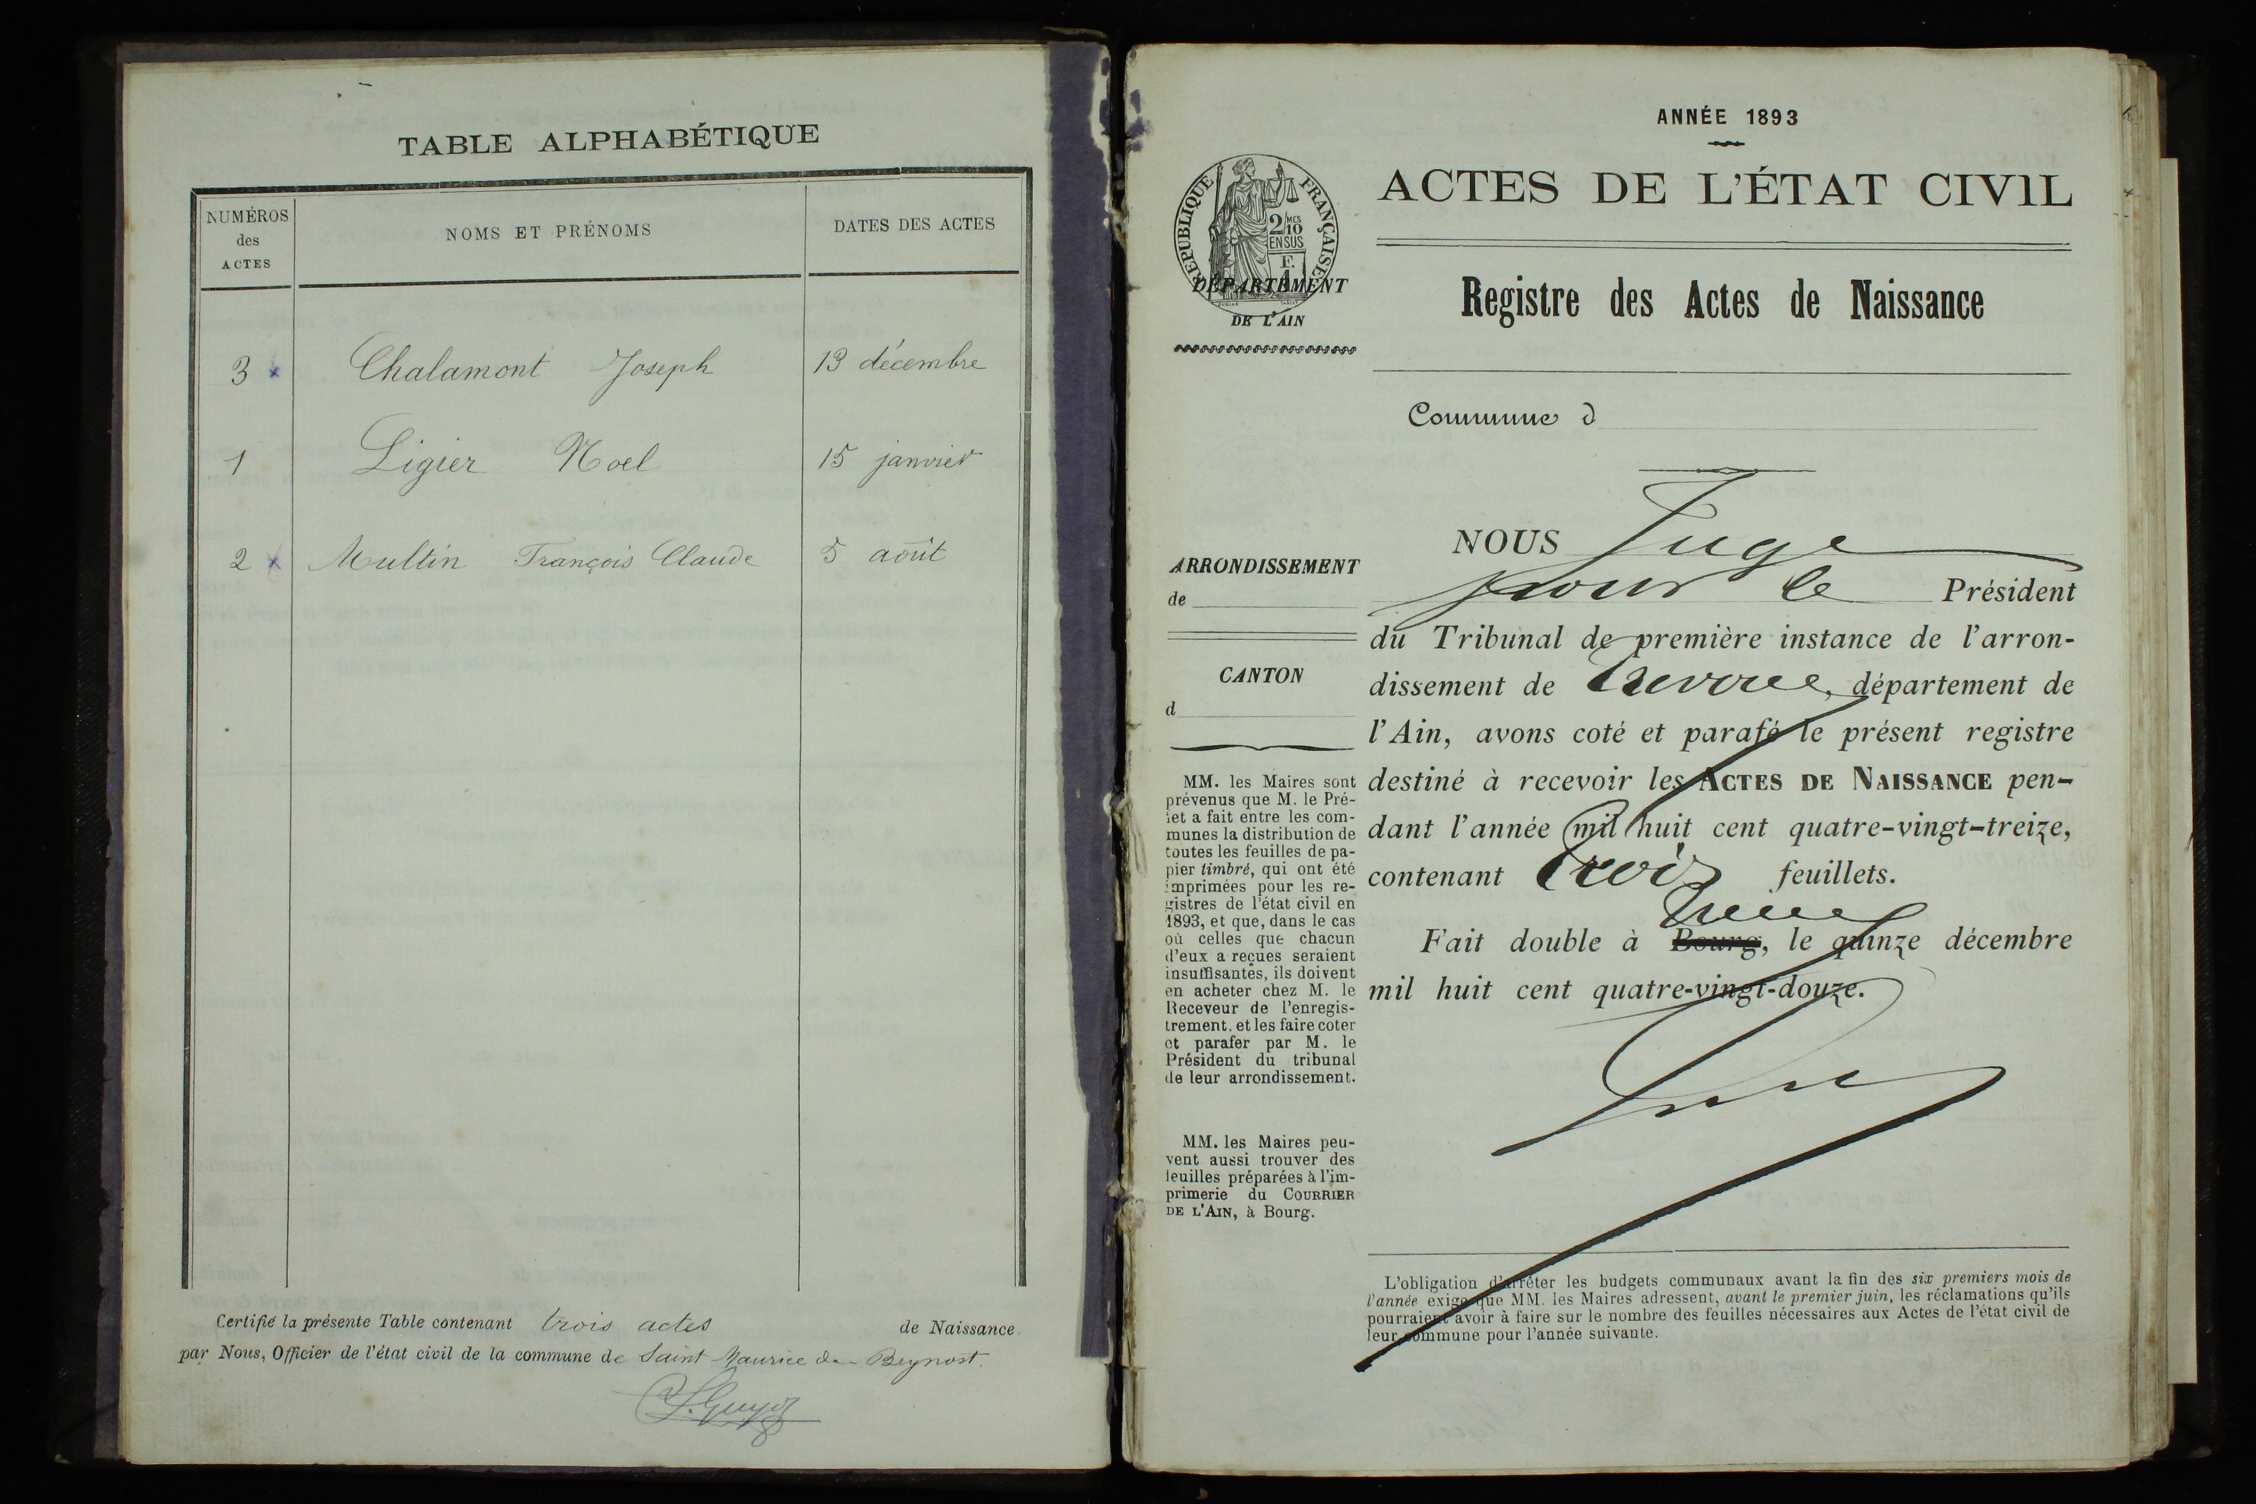 TABLE ALPHABÉTIQUE
NUMÉROS
des
ACTES
NOMS ET PRÉNOMS
DATES DES ACTES
3 Chalamont Joseph 13 décembre
1 Ligier Noel 15 janvier
2 Multin François Claude 5 août
Certifié la présente Table contenant trois actes de Naissance
par Nous, Officier de l'état civil de la commune de Saint Maurice de Beynost.
ANNÉE 1893
ACTES DE L'ÉTAT CIVIL
RÉPUBLIQUE FRANÇAISE
2/10
EN SUS
DÉPARTEMENT
DE L'AIN
Registre des Actes de Naissance
Commune d
ARRONDISSEMENT
de
CANTON
d
MM. les Maires sont
prévenus que M. le Pré-
fet a fait entre les com-
munes la distribution de
toutes les feuilles de pa-
pier timbré, qui ont été
imprimées pour les re-
gistres de l'état civil en
1893, et que, dans le cas
où celles que chacun
d'eux a reçues seraient
insuffisantes, ils doivent
en acheter chez M. le
Receveur de l'enregis-
trement, et les faire coter
et parafer par M. le
Président du tribunal
de leur arrondissement.
MM. les Maires peu-
vent aussi trouver des
feuilles préparées à l'im-
primerie du COURRIER
DE L'AIN, à Bourg.
NOUS Juge
pour le Président
du Tribunal de première instance de l'arron-
dissement de Trévoux, département de
l'Ain, avons coté et parafé le présent registre
destiné à recevoir les ACTES DE NAISSANCE pen-
dant l'année mil huit cent quatre-vingt-treize,
contenant trois feuillets.
Fait double à Bourg, le quinze décembre
mil huit cent quatre-vingt-douze.
L'obligation d'arrêter les budgets communaux avant la fin des six premiers mois de
l'année exige que MM. les Maires adressent, avant le premier juin, les réclamations qu'ils
pourraient avoir à faire sur le nombre des feuilles nécessaires aux Actes de l'état civil de
leur commune pour l'année suivante.